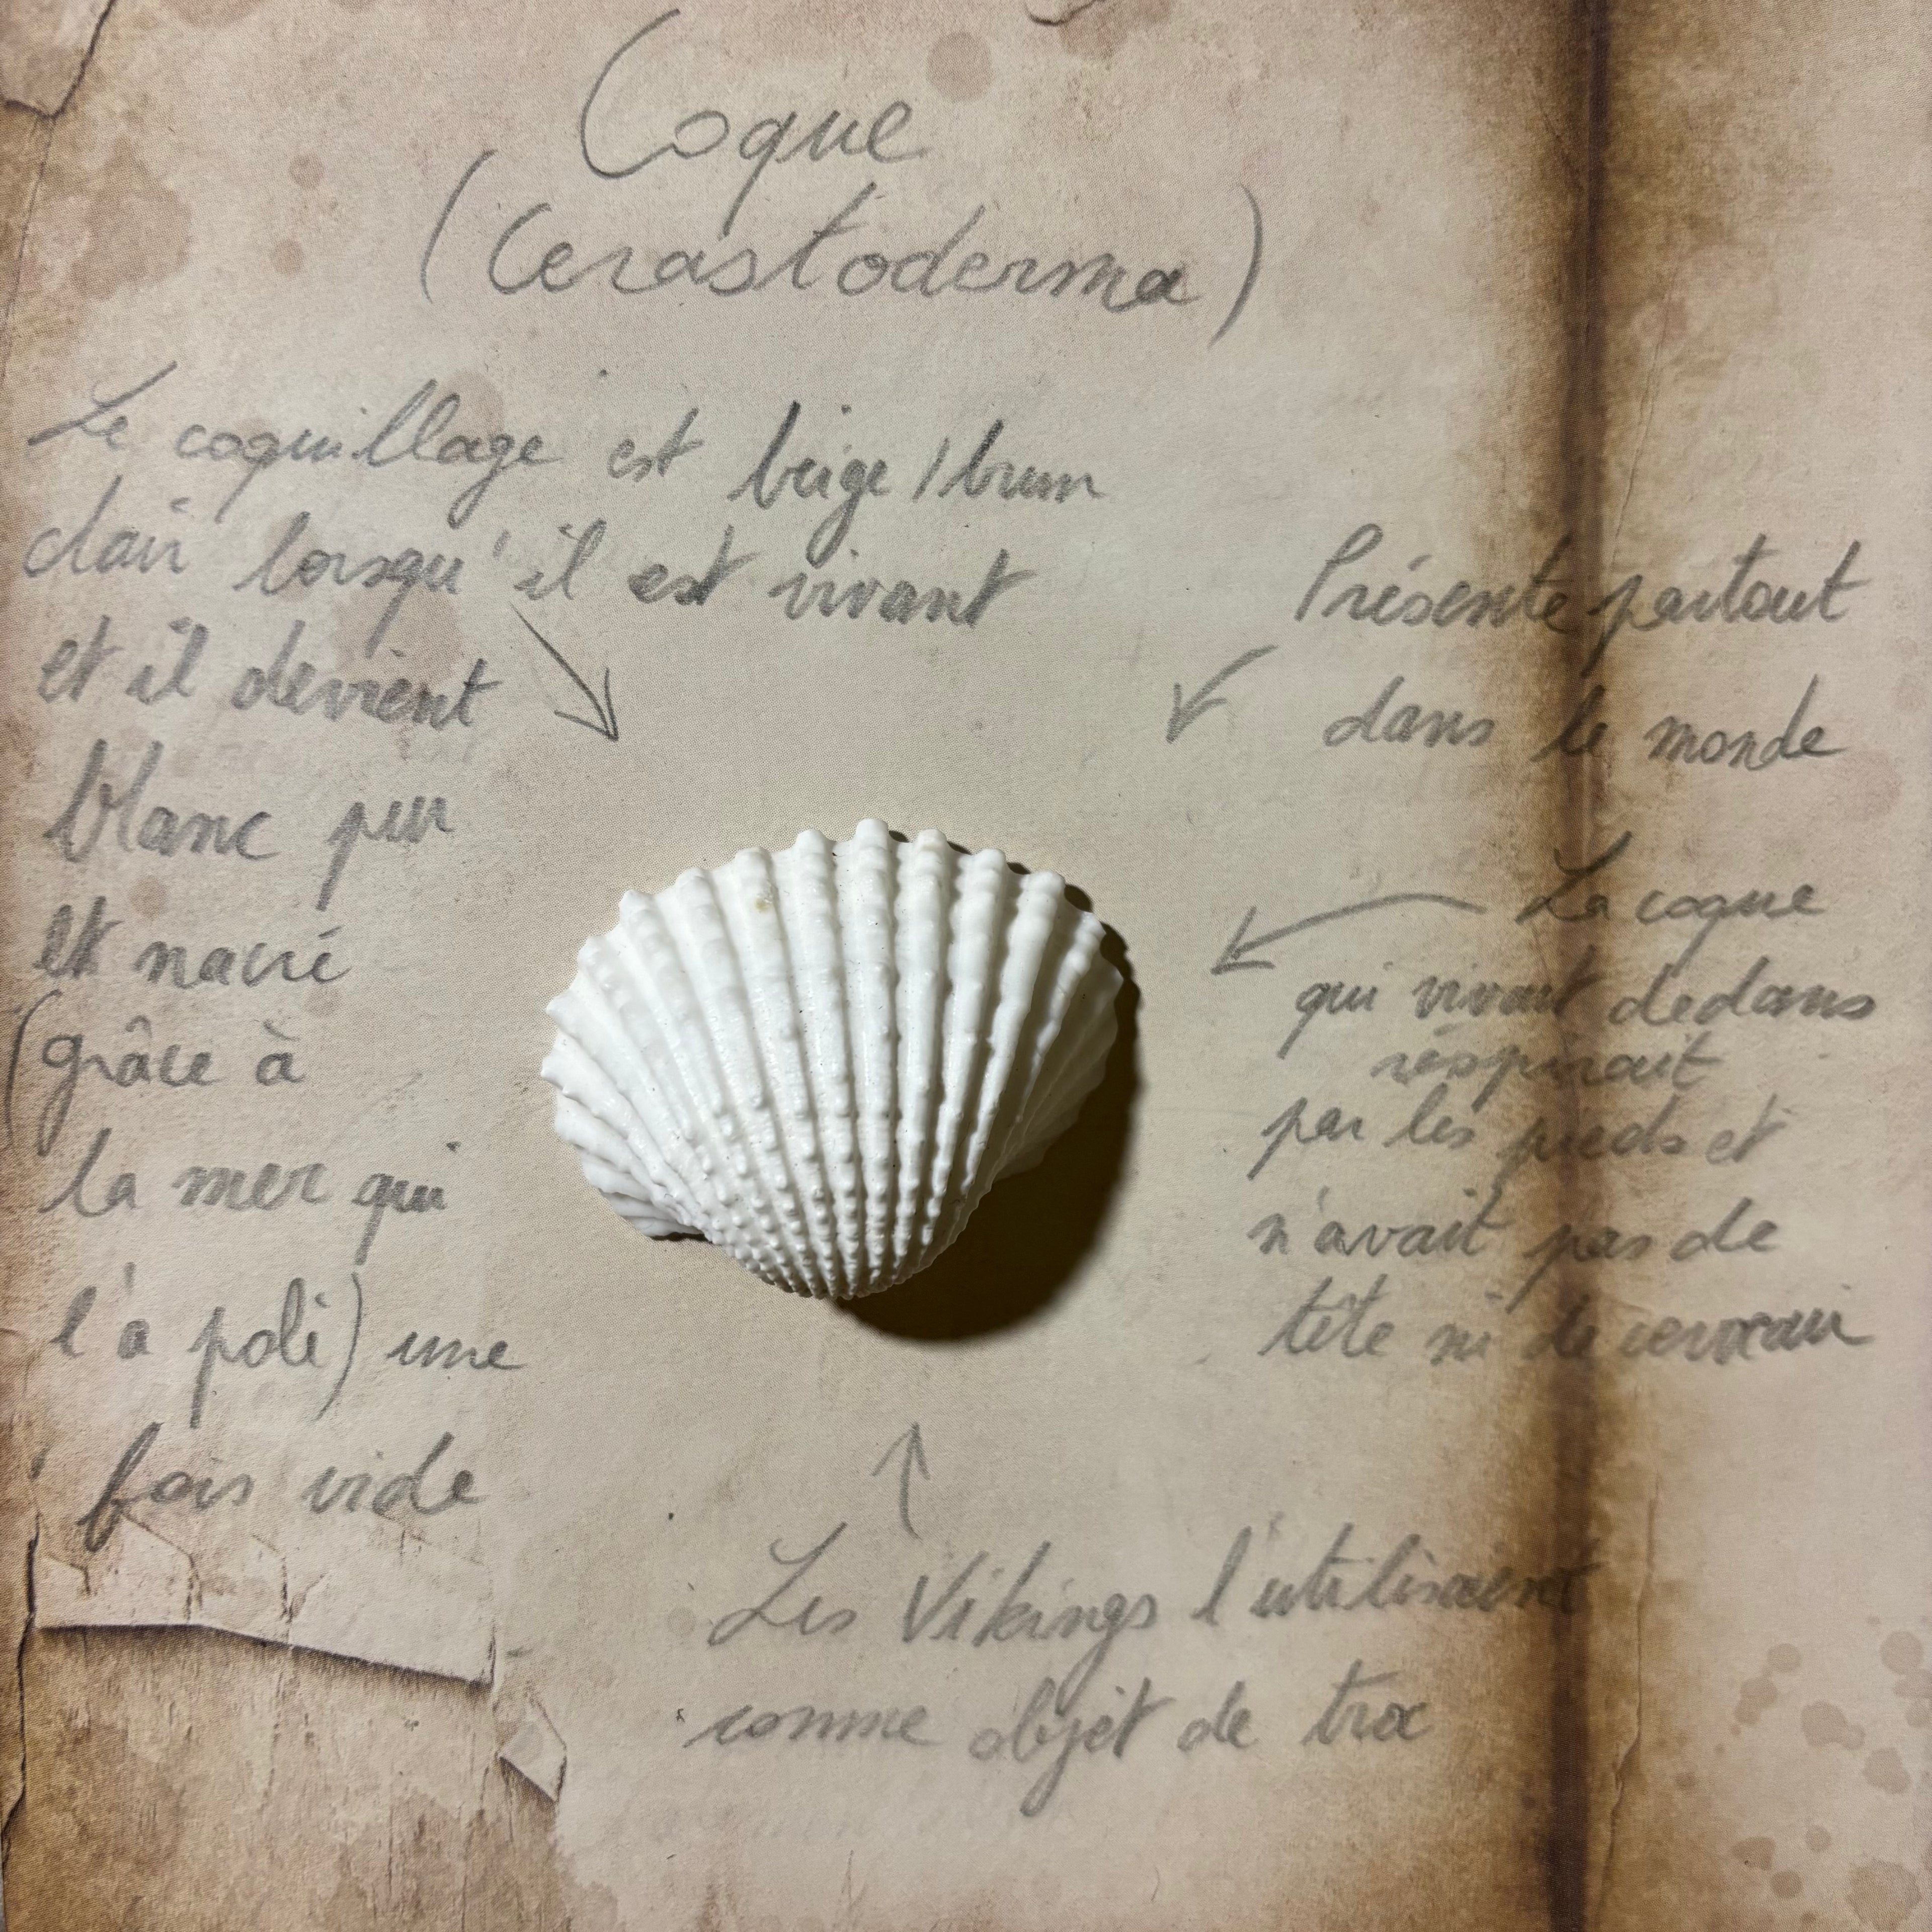 Coque
(Cerastoderma)
Le coquillage est beige/brun
clair lorsqu'il est vivant
et il devient
blanc pur
et nacré
(grâce à
la mer qui
l'a poli) une
fois vide
Présente partout
dans le monde
La coque
qui vivait dedans
respirait
par les pieds et
n'avait pas de
tête ni de cerveau
Les Vikings l'utilisaient
comme objet de troc